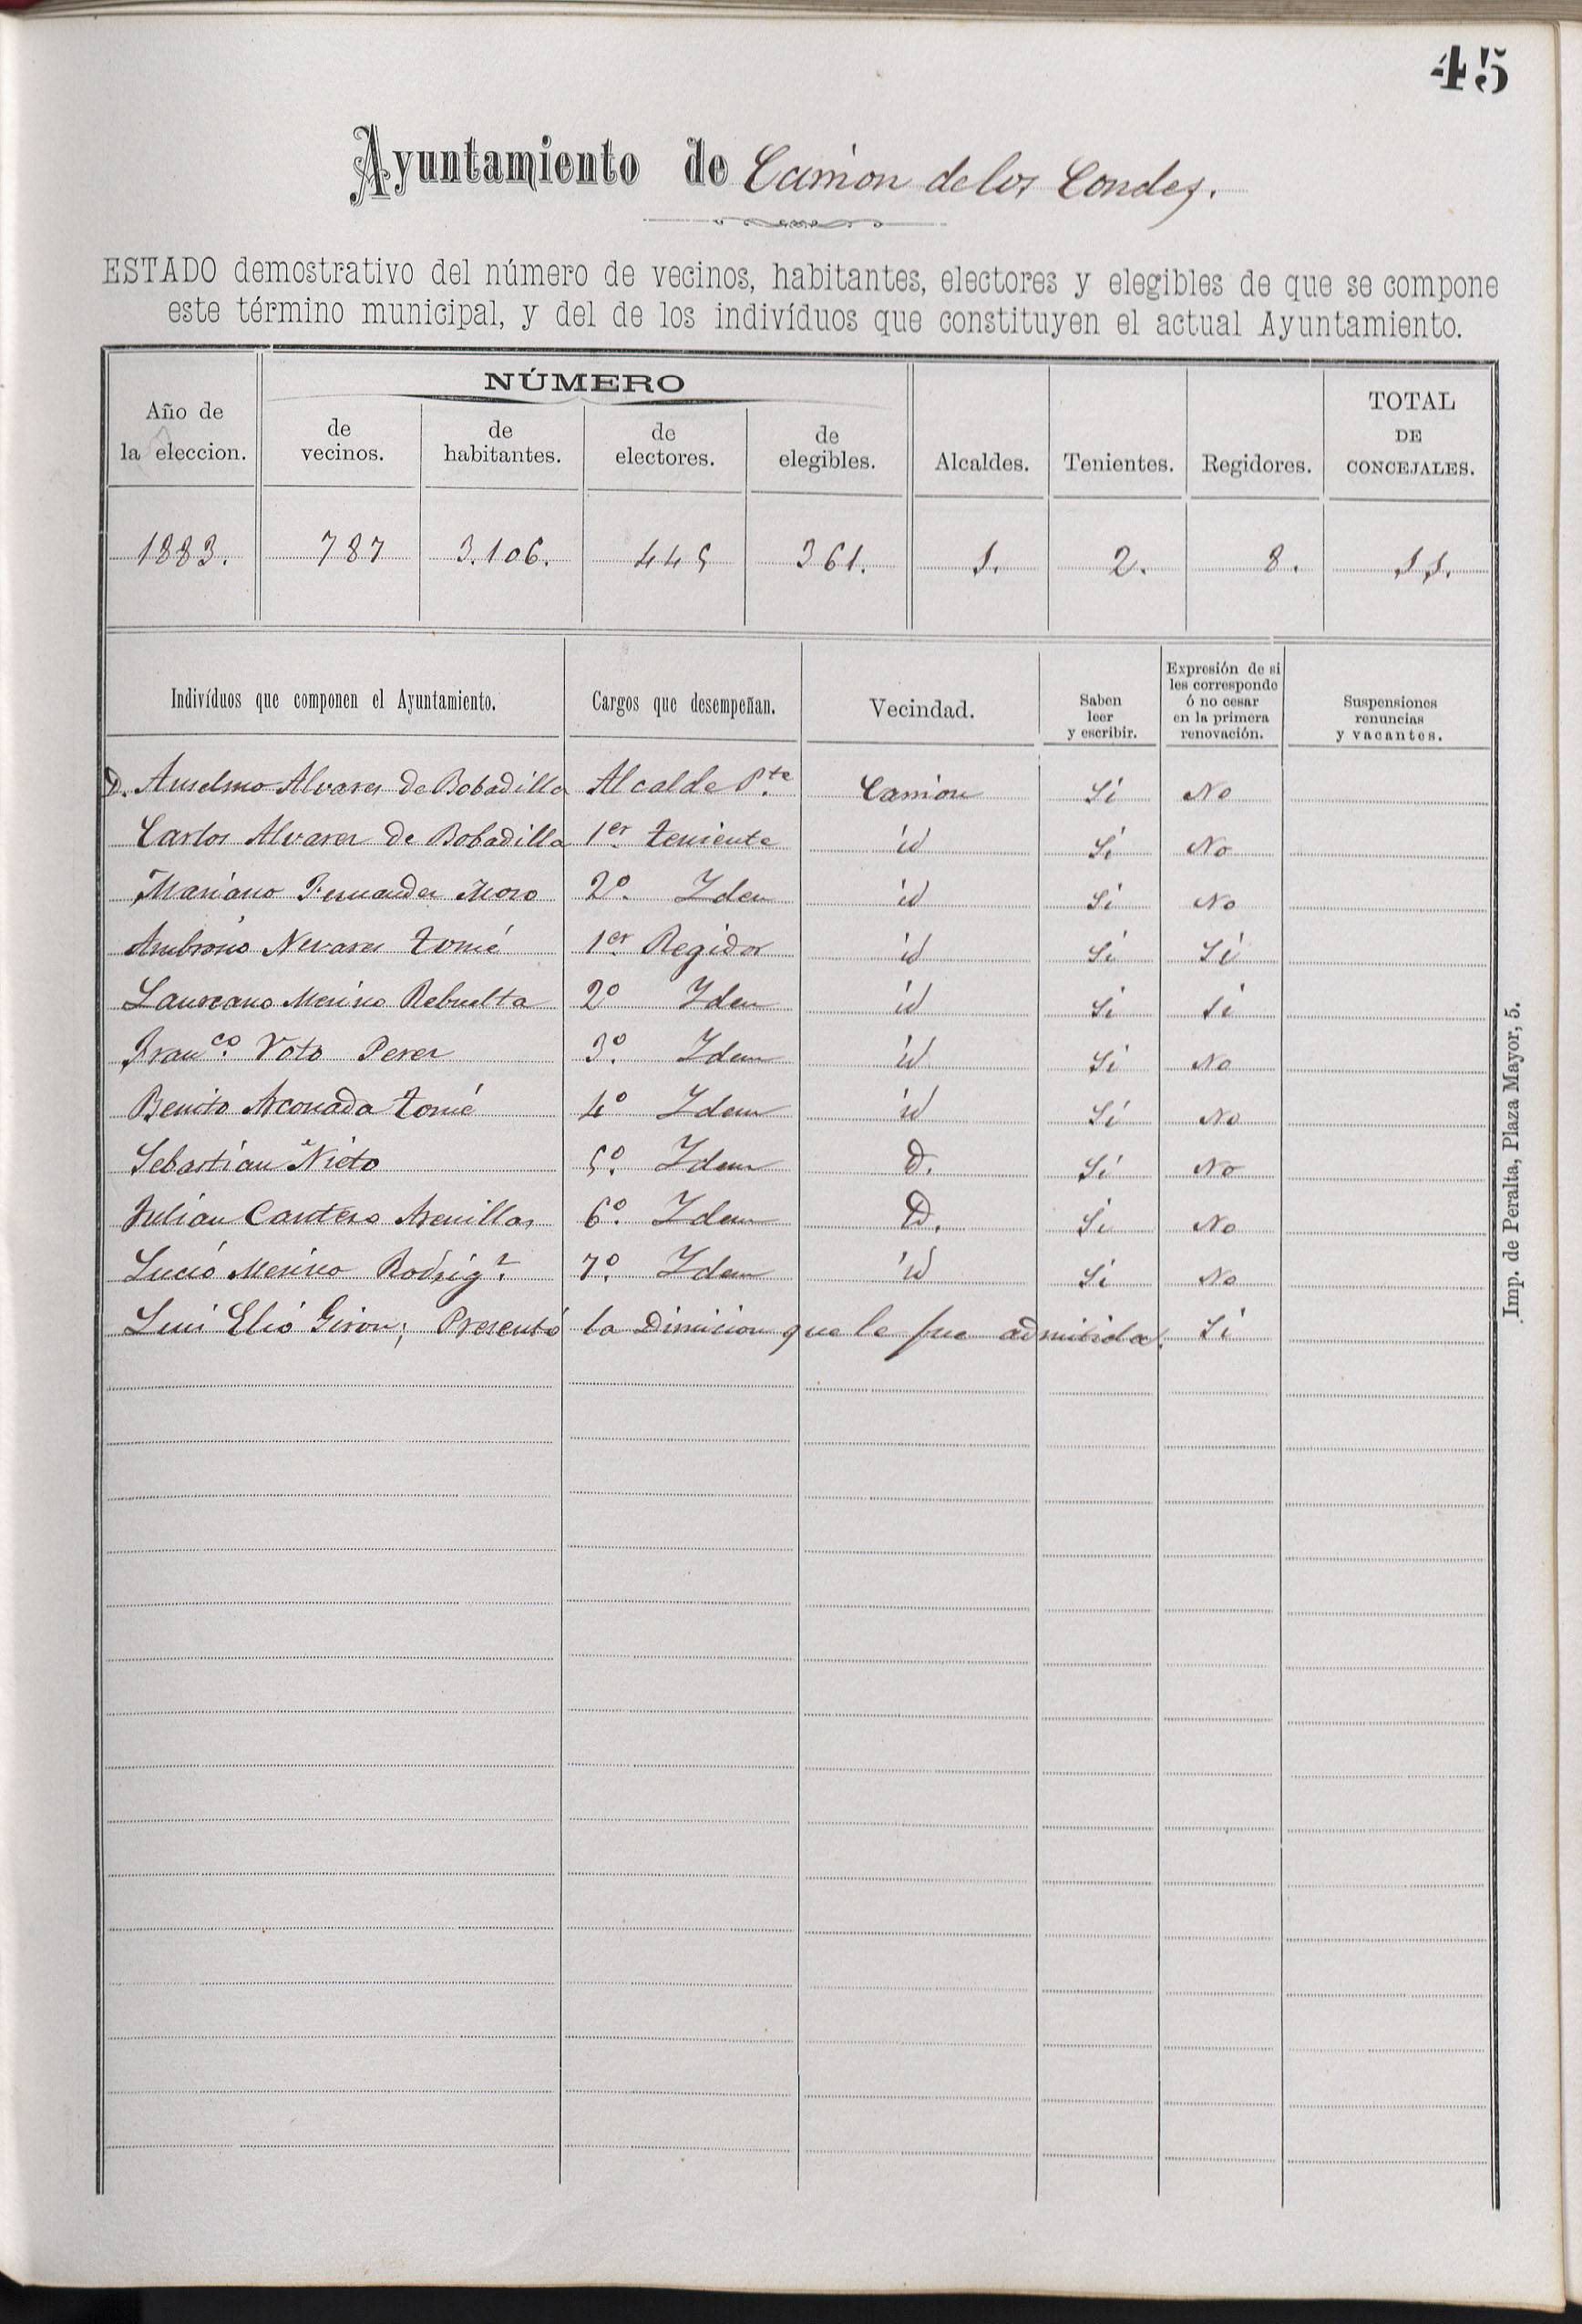 45
Ayuntamiento de Carrion de los Condes.
ESTADO demostrativo del número de vecinos, habitantes, electores y elegibles de que se compone
este término municipal, y del de los indivíduos que constituyen el actual Ayuntamiento.
Año de la eleccion. NÚMERO de vecinos. de habitantes. de electores. de elegibles. Alcaldes. Tenientes. Regidores. TOTAL DE CONCEJALES.
1883. 787 3.106. 445 361. 1. 2. 8. 11.
Indivíduos que componen el Ayuntamiento. Cargos que desempeñan. Vecindad. Saben leer y escribir. Expresión de si les corresponde ó no cesar en la primera renovación. Suspensiones renuncias y vacantes.
D. Anselmo Alvarez De Bobadilla Alcalde Pte. Carrion Si No
Carlos Alvarez de Bobadilla 1er teniente id Si No
Mariano Fernandez Moro 2º. Idem id Si No
Ambrosio Nevares tomé 1er Regidor id Si Si
Laureano Merino Rebuelta 2º Idem id Si Si
Franco. Voto Perez 3º. Idem id Si No
Benito Arconada tomé 4º Idem id Si No
Sebastian Nieto 5º. Idem D. Si No
Julian Cantero Arenillas 6º. Idem D. Si No
Lucio Merino Rodrigz. 7º. Idem id Si No
Luis Elió Giron; Presentó la Dimicion que le fue admitida. Si
Imp. de Peralta, Plaza Mayor, 5.